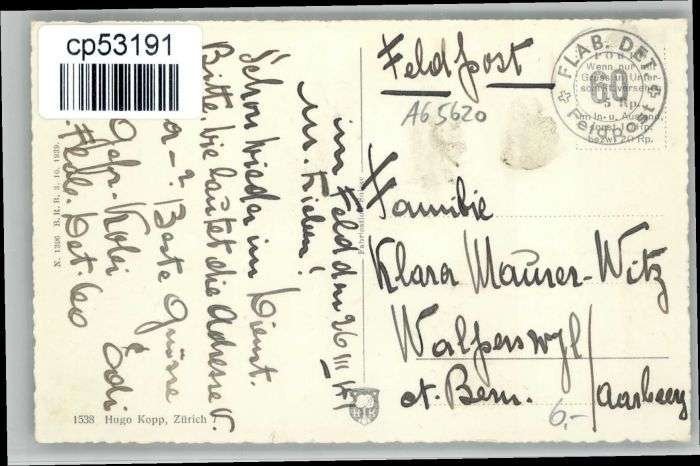 cp53191
Feldpost
A65620
FLAB. DET.
60
Feldpost
Wenn nur mit
5 Rp.
im In- u. Ausland
bezw. 20 Rp.
Familie
Klara Maurer-Witz
Walperswyl/
ct. Bern. Aarberg
6,-
im Feld dm 26 III
M. Lieben!
Schon wieder im Dienst.
Bitte, wie lautet die Adresse v.
Beste Grüsse
Gefr. Kobi Edi
Det. 60
N. 1336 B. R. B. 3. 10. 1939.
1538 Hugo Kopp, Zürich 7